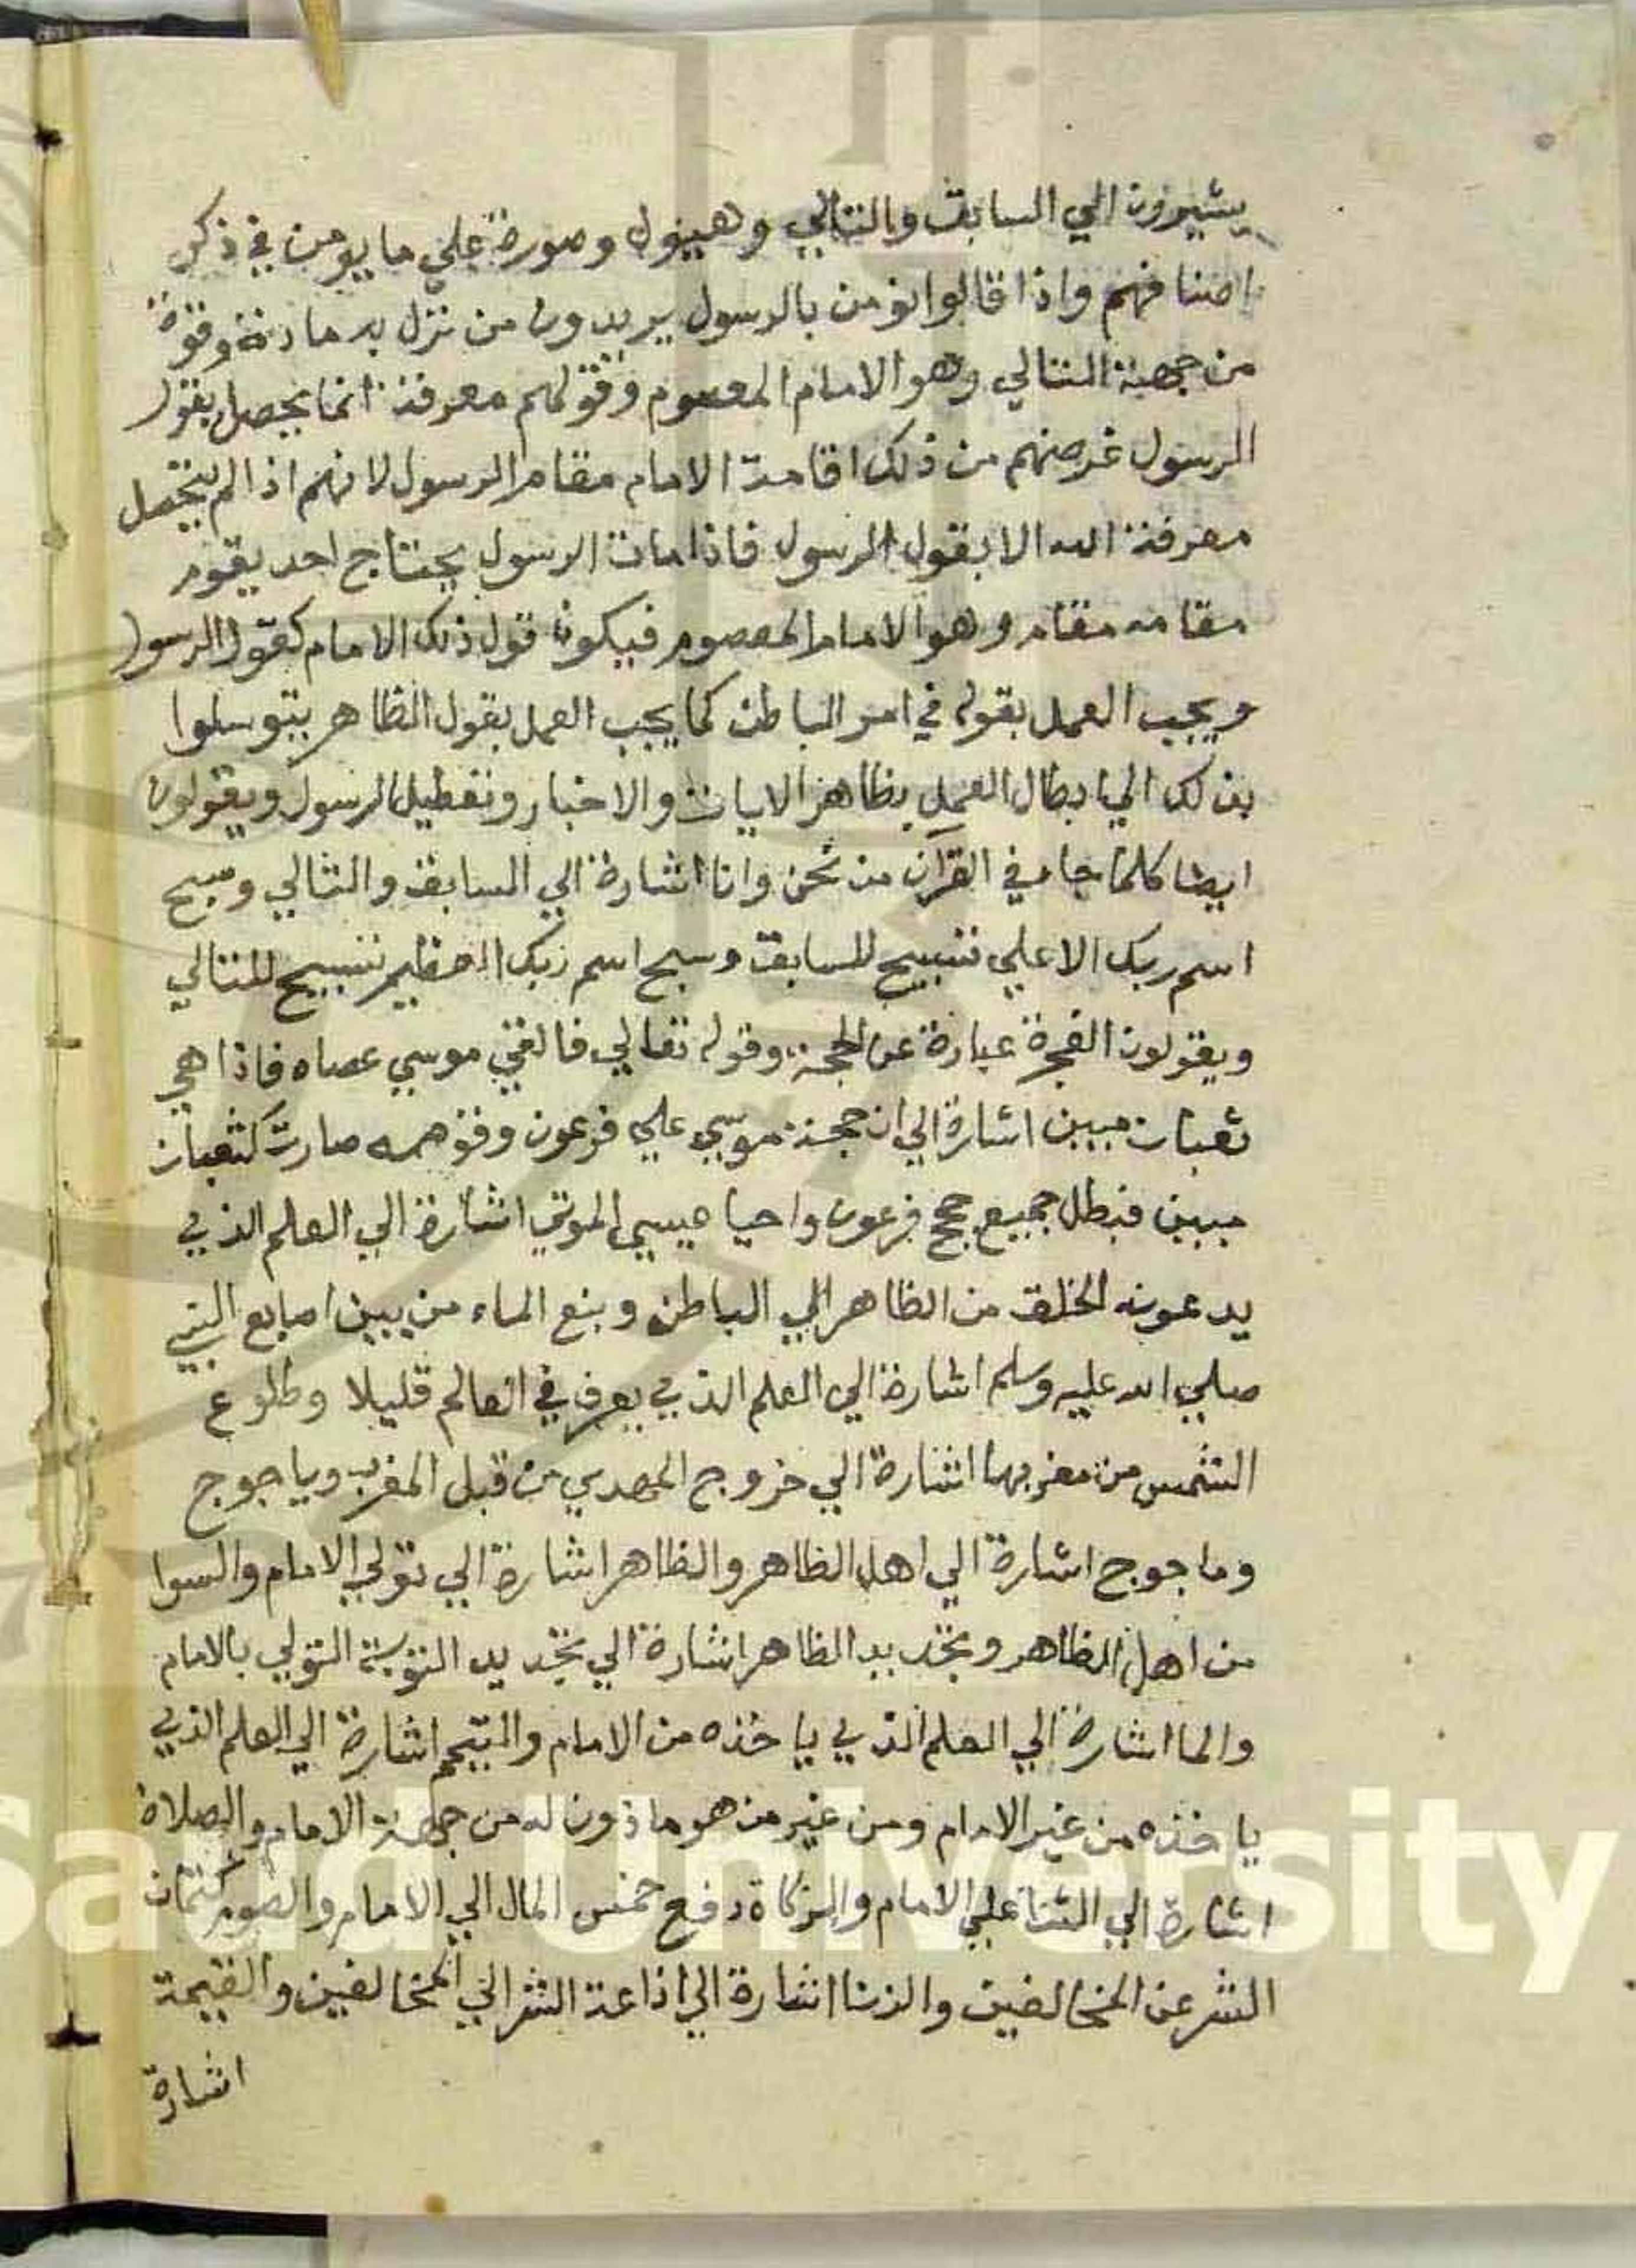 يشيرون الي السابق والتالي وهيول وصورة علي ما يومن في ذكر
اصنافهم واذا قالوا نومن بالرسول يريدون من نزل به مادة وقوة
من جهة التالي وهو الامام المعسوم وقولهم معرفة انما يحصل بقول
الرسول غرضهم من ذلك اقامة الامام مقام الرسول لانهم اذا لم يتحصل
معرفة الله الا بقول الرسول فاذا مات الرسول يحتاج احد يقوم
مقامه مقام وهو الامام المعصوم فيكون قول ذلك الامام كقول الرسول
ويجب العمل بقوله في امر الباطن كما يجب العمل بقول الظاهر يتوسلوا
بذلك الي ابطال العمل بظاهر الايات والاخبار وتعطيل الرسول ويقولون
ايضا كلما جا في القرآن من نحن وانا اشارة الي السابق والتالي وسبح
اسم ربك الاعلي تسبيح للسابق وسبح اسم ربك العظيم تسبيح للتالي
ويقولون الفجرة عبارة عن الحجة وقوله تعالي فالقي موسي عصاه فاذا هي
ثعبان مبين اشارة الي ان حجة موسي علي فرعون وقومه صارت كثعبان
مبين فبطل جميع حجج فرعون واحيا عيسي الموتي اشارة الي العلم الذي
يدعون الخلق من الظاهر الي الباطن وبنع الماء من بين اصابع النبي
صلي الله عليه وسلم اشارة الي العلم الذي يعرف في العالم قليلا وطلوع
الشمس من مغربها اشارة الي خروج المهدي من قبل المغرب وياجوج
وماجوج اشارة الي اهل الظاهر والظاهر اشارة الي تولي الامام والسوا
من اهل الظاهر وتجديد الظاهر اشارة الي تجديد التوبة التولي بالامام
والما اشارة الي العلم الذي ياخذه من الامام والتيمم اشارة الي العلم الذي
ياخذه من غير الامام ومن غير من هو ماذون له من جهة الامام والصلاة
اشارة الي الثنا علي الامام والزكاة دفع خمس المال الي الامام والصوم كتمان
الشر عن المخالفين والزنا اشارة الي اذاعة الشر الي المخالفين والقيمة
اشارة
Saud University